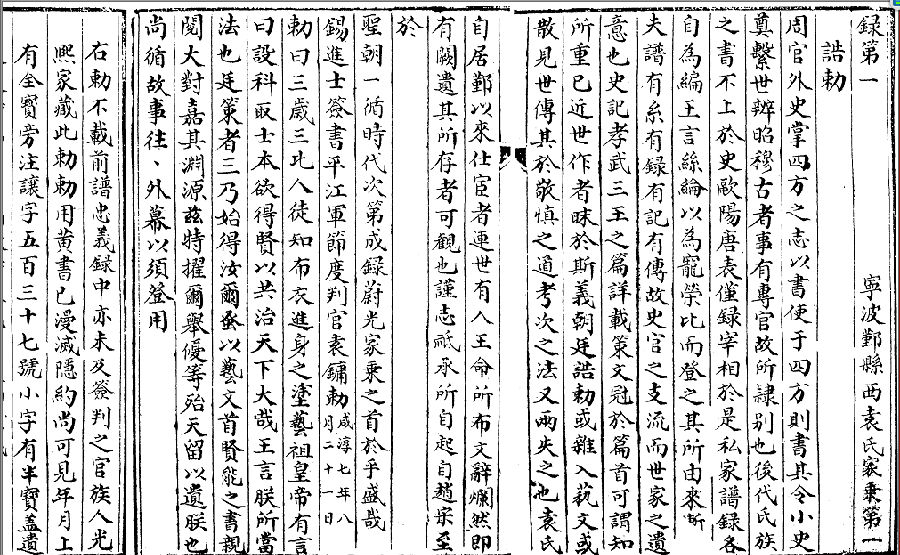 録第一　寧波鄞縣西袁氏家乗第一
誥勅
周官外史掌四方之志以書使于四方則書其令小史
奠繫世辨昭穆古者事有專官故所隷别也後代氏族
之書不上於史歐陽唐表僅録宰相於是私家譜録各
自為編王言絲綸以為寵榮比而登之其所由來昕
夫譜有系有録有記有傳故史官之支流而世家之遺
意也史記孝武三王之篇詳載策文冠於篇首可謂知
所重已近世作者昧於斯義朝廷誥勅或雜入藝文或
散見世傳其於敬慎之道考次之法又兩失之也袁氏
自居鄞以來仕宦者連世有人王命所布文辭爛然即
有闕遺其所存者可觀也謹志祗承所自起自趙宋至
於
聖朝一循時代次第成録蔚光家乗之首於乎盛哉
錫進士簽書平江軍節度判官袁鏞勅咸淳七年八月二十一日
勅曰三歲三比人徒知布衣進身之塗藝祖皇帝有言
曰設科取士本欲得賢以共治天下大哉王言朕所當
法也廷策者三乃始得汝爾叄以藝文首賢能之書親
閲大對嘉其淵源兹特擢爾舉優等殆天留以遺朕也
尚循故事往、外幕以須登用
右勅不載前譜忠義録中亦未及簽判之官族人光
熙家藏此勅勅用黄書已漫滅隱約尚可見年月上
有全寶旁注讓字五百三十七號小字有半寶蓋遺